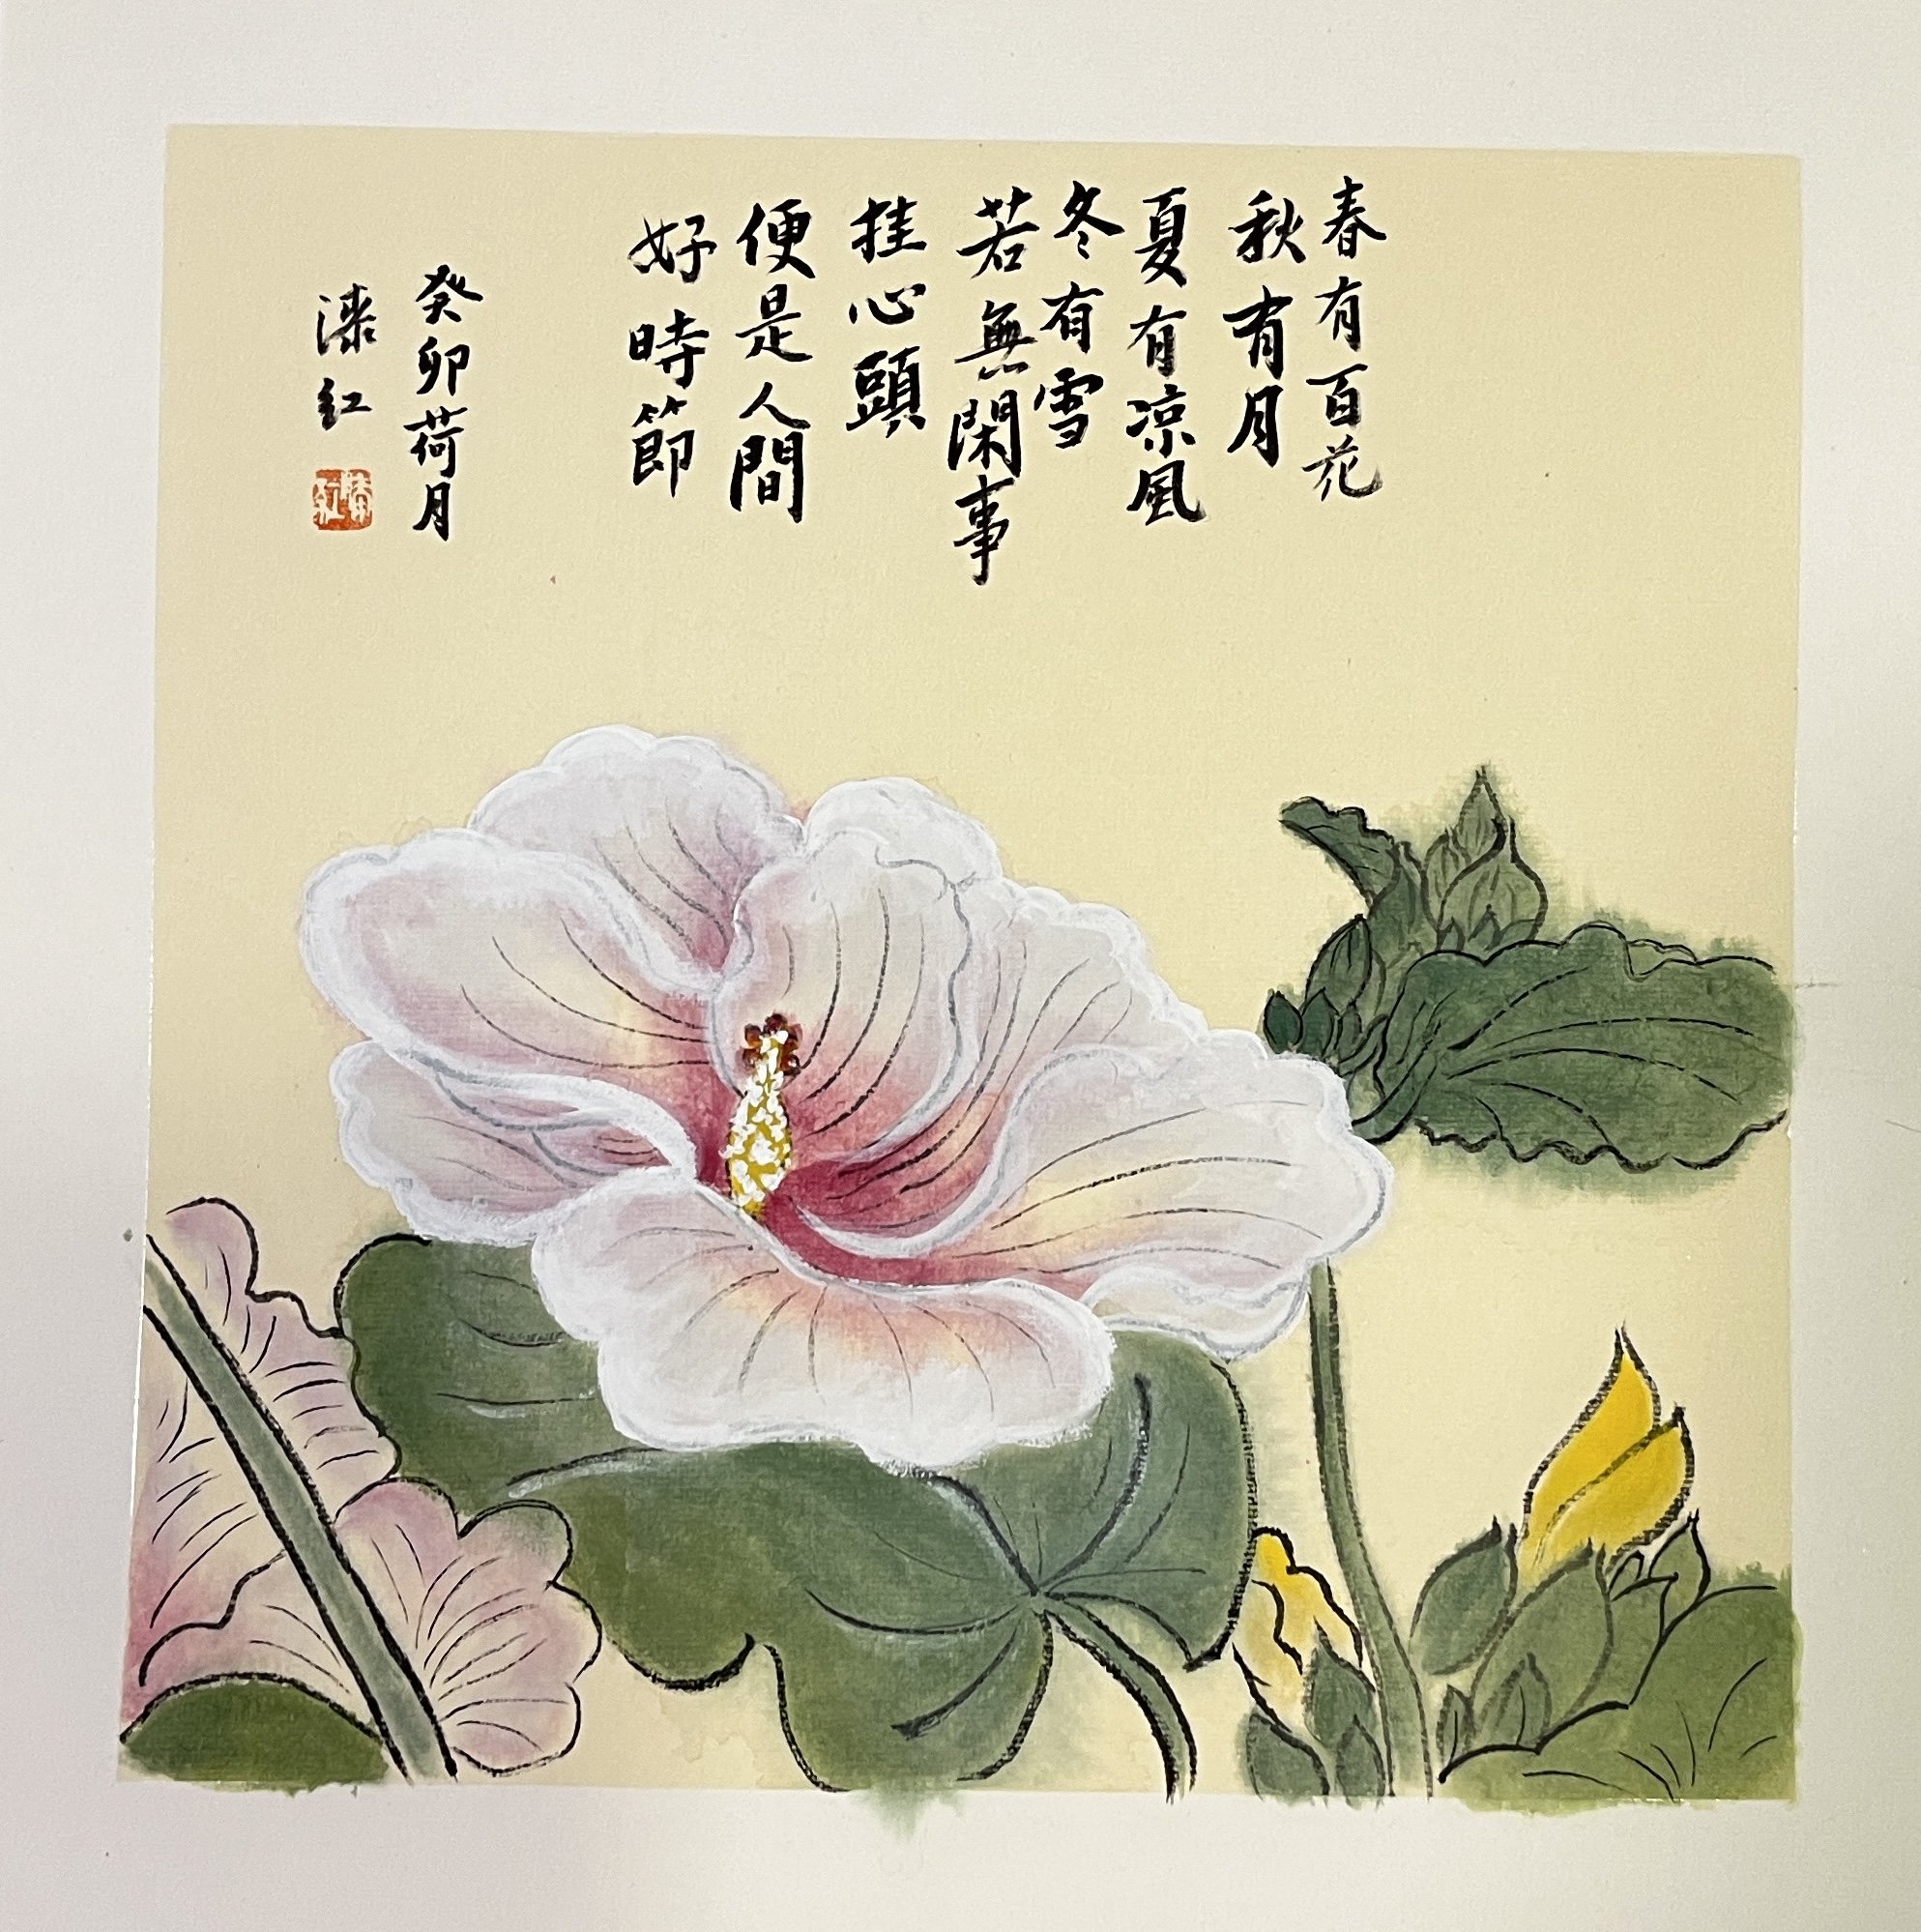 春有百花
秋有月
夏有凉風
冬有雪
若無閑事
挂心頭
便是人間
好時節
癸卯荷月
漆红